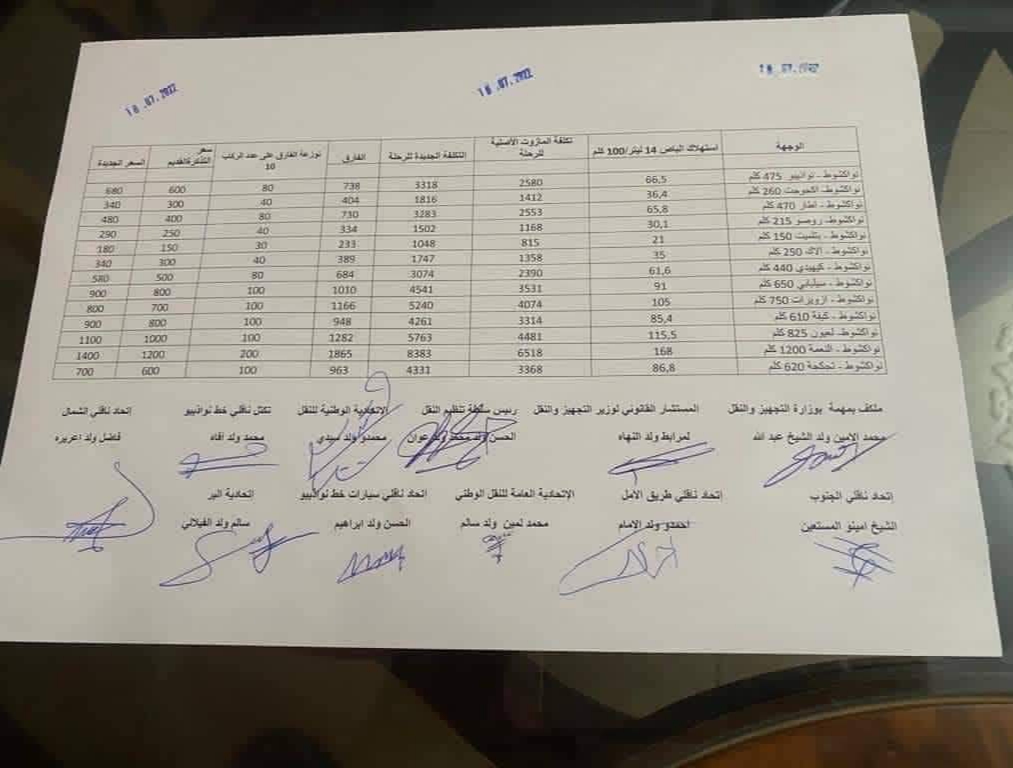 18.07.2022
18.07.2022
18.07.2022
الوجهة استهلاك الباص 14 ليتر/100 كلم تكلفة المازوت الأصلية للرحلة التكلفة الجديدة للرحلة الفارق توزعة الفارق على عدد الركاب 10 سعر التذكرة القديم السعر الجديدة
نواكشوط - نواذيبو 475 كلم 66,5 2580 3318 738 80 600 680
نواكشوط- اكجوجت 260 كلم 36,4 1412 1816 404 40 300 340
نواكشوط - اطار 470 كلم 65,8 2553 3283 730 80 400 480
نواكشوط- روصو 215 كلم 30,1 1168 1502 334 40 250 290
نواكشوط - بتلميت 150 كلم 21 815 1048 233 30 150 180
نواكشوط - الاك 250 كلم 35 1358 1747 389 40 300 340
نواكشوط - كيهيدي 440 كلم 61,6 2390 3074 684 80 500 580
نواكشوط - سيلبابي 650 كلم 91 3531 4541 1010 100 800 900
نواكشوط - ازويرات 750 كلم 105 4074 5240 1166 100 700 800
نواكشوط - كيفة 610 كلم 85,4 3314 4261 948 100 800 900
نواكشوط- لعيون 825 كلم 115,5 4481 5763 1282 100 1000 1100
نواكشوط - النعمة 1200 كلم 168 6518 8383 1865 200 1200 1400
نواكشوط - تجكجة 620 كلم 86,8 3368 4331 963 100 600 700
مكلف بمهمة بوزارة التجهيز والنقل المستشار القانوني لوزير التجهيز والنقل رئيس سلطة تنظيم النقل الاتحادية الوطنية للنقل تكتل ناقلي خط نواذيبو إتحاد ناقلي الشمال
محمد الامين ولد الشيخ عبد الله لمرابط ولد النهاه الحسن ولد محمد ولد عوان محمدو ولد سيدي محمد ولد افاه فاضل ولد اعريره
إتحاد ناقلي الجنوب إتحاد ناقلي طريق الأمل الإتحادية العامة للنقل الوطني اتحاد ناقلي سيارات خط نواذيبو إتحادية البر
الشيخ امينو المستعين احمدو ولد الإمام محمد لمين ولد سالم الحسن ولد ابراهيم سالم ولد الفيلالي